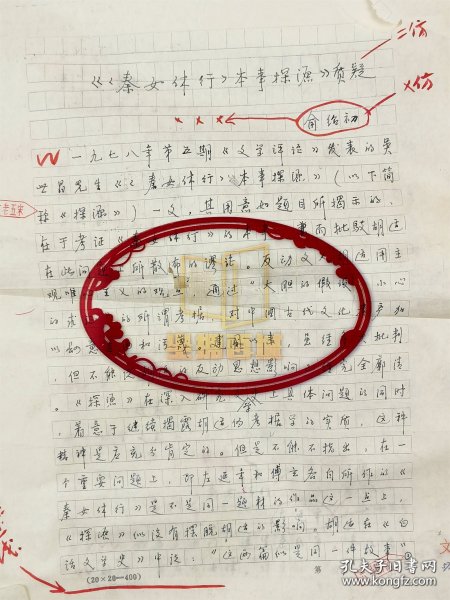 二份
《〈秦女休行〉本事探源》质疑
×份
俞绍初
一九七八年第五期《文学评论》发表的吴
世昌先生《〈秦女休行〉本事探源》（以下简
称《探源》）一文，其用意如题目所揭示的，
在于考证《秦女休行》的本事，而批驳胡适
在此问题上所散布的谬误。反动文人胡适用主
观唯心主义的观点，通过"大胆的假设，小心
的求证"的所谓考据，对中国古代文化遗产加
以
但不能
。《探源》在深入研究具体问题的同时
，着意于继续揭露胡适伪考据学的实质，这种
精神是应充分肯定的。但是不能不指出，在一
个重要问题上，即左延年和傅玄各自所作的《
秦女休行》是不是同一题材的作品这一点上，
《探源》似没有摆脱胡适的影响。胡适在《白
话文学史》中说："这两篇似是同一件故事
(20×20=400)
第
孔夫子旧书网
www.kongfz.com